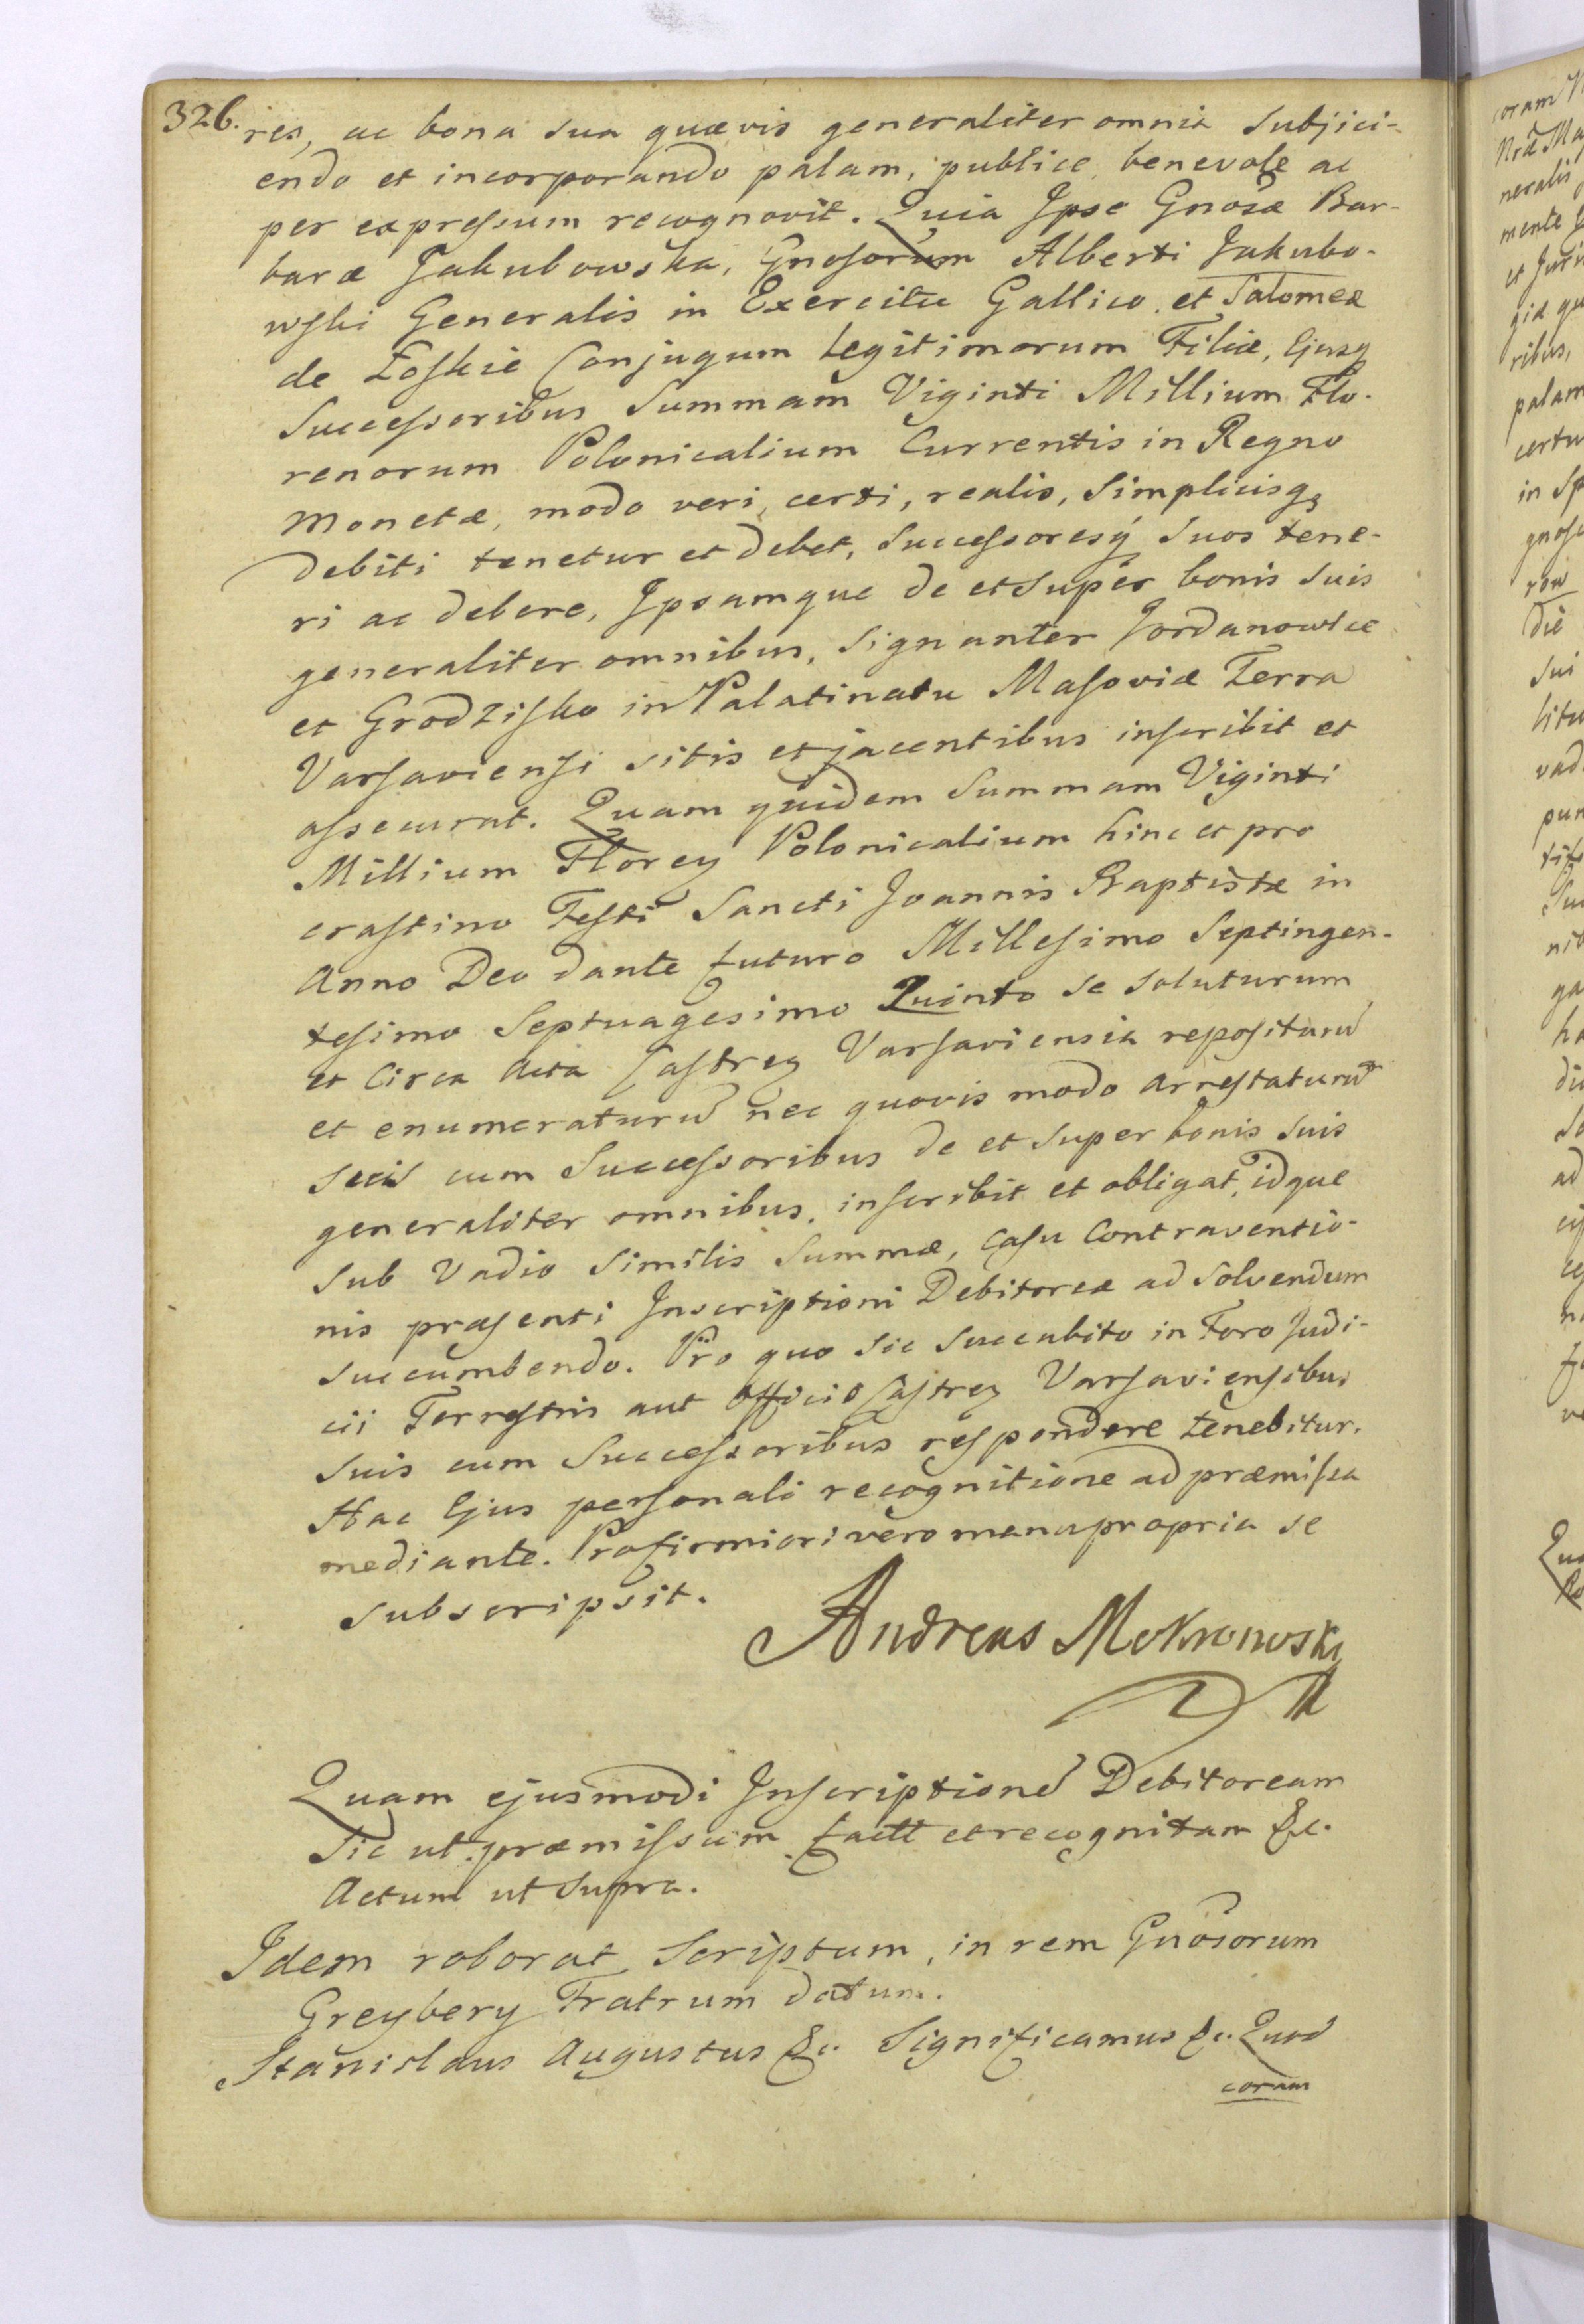 326.
res, ac bona sua quævis generaliter omnia subjici-
endo et incorporando palam, publice, benevole ac
per expressum recognovit. Quia Ipse Gnosæ Bar-
baræ Jakubowska, Gnosorum Alberti Jakubo-
wski Generalis in Exercitu Gallico et Salomeæ
de Łoskie Conjugum legitimorum Filiæ, Ejusq
Successoribus Summam Viginti Millium Flo-
renorum Polonicalium Currentis in Regno
Monetæ, modo veri, certi, realis, simplicisq
debiti tenetur et debet, Successoresq suos tene-
ri ac debere, Ipsamque de et super bonis suis
generaliter omnibus, signanter Jordanowice
et Grodzisko in Palatinatu Masoviæ Terra
Varsaviensi sitis et jacentibus inscribit et
assecurat. Quam quidem Summam Viginti
Millium Florey Polonicalium hinc et pro
crastino Festi Sancti Joannis Baptistæ in
Anno Deo dante futuro Millesimo Septingen-
tesimo Septuagesimo Quinto se soluturum
et circa Acta Castreń Varsaviensia repositurū
et enumeraturū nec quovis modo arrestaturū
suis cum Successoribus de et super bonis suis
generaliter omnibus, inscribit et obligat, idque
sub Vadio similis Summæ, casu contraventio-
nis præsenti Inscriptioni Debitoreæ ad solvendum
succumbendo. Pro quo sic succubito in Foro Judi-
cii Terrestris aut Officio Castreń Varsaviensibus
suis cum Successoribus respondere tenebitur.
Hac Ejus personali recognitione ad præmissa
mediante. Pro firmiori vero manu propria se
subscripsit.
Andreas Mokronoski
Quam ejusmodi Inscriptionē Debitoream
sic ut præmissum fact et recognitam &c.
Actum ut supra.
Idem roborat Scriptum, in rem Gnosorum
Greybery Fratrum datum.
Stanislaus Augustus &c. Significamus &c. Quod
coram